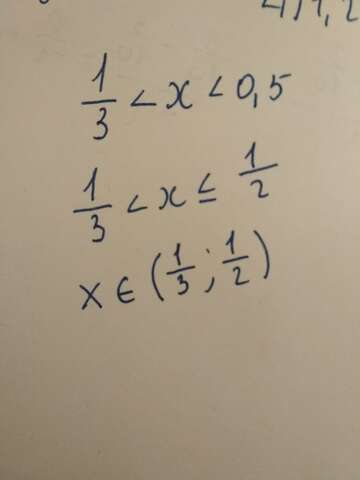 1/3 < x < 0,5
1/3 < x ≤ 1/2
x ∈ (1/3 ; 1/2)